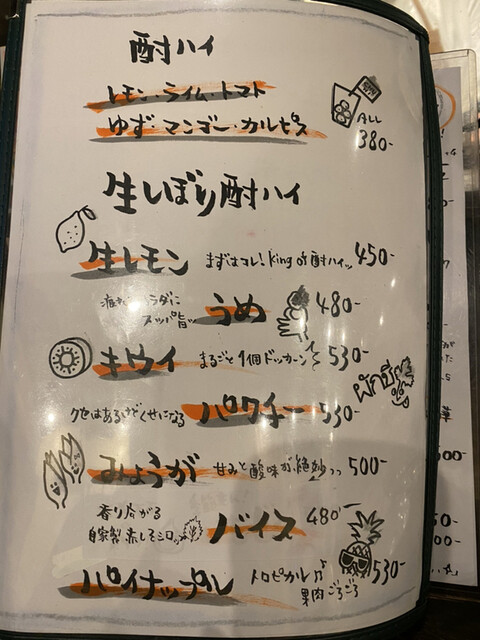 酎ハイ
レモン・ライム・トマト
ゆず・マンゴー・カルピス
ALL
380-
生しぼり酎ハイ
生レモン まずはコレ!King of 酎ハイッ 450-
カラダに
スッパ旨ッ うめ 480-
キウイ まるごと1個ドッカーン 530-
クセはあるけどくせになる パクチー 530-
ผักชี
みょうが 甘みと酸味が絶妙っっ 500-
香り広がる
自家製赤しそシロップ バイス 480-
パイナップル トロピカル♫
果肉ごろごろ 530-